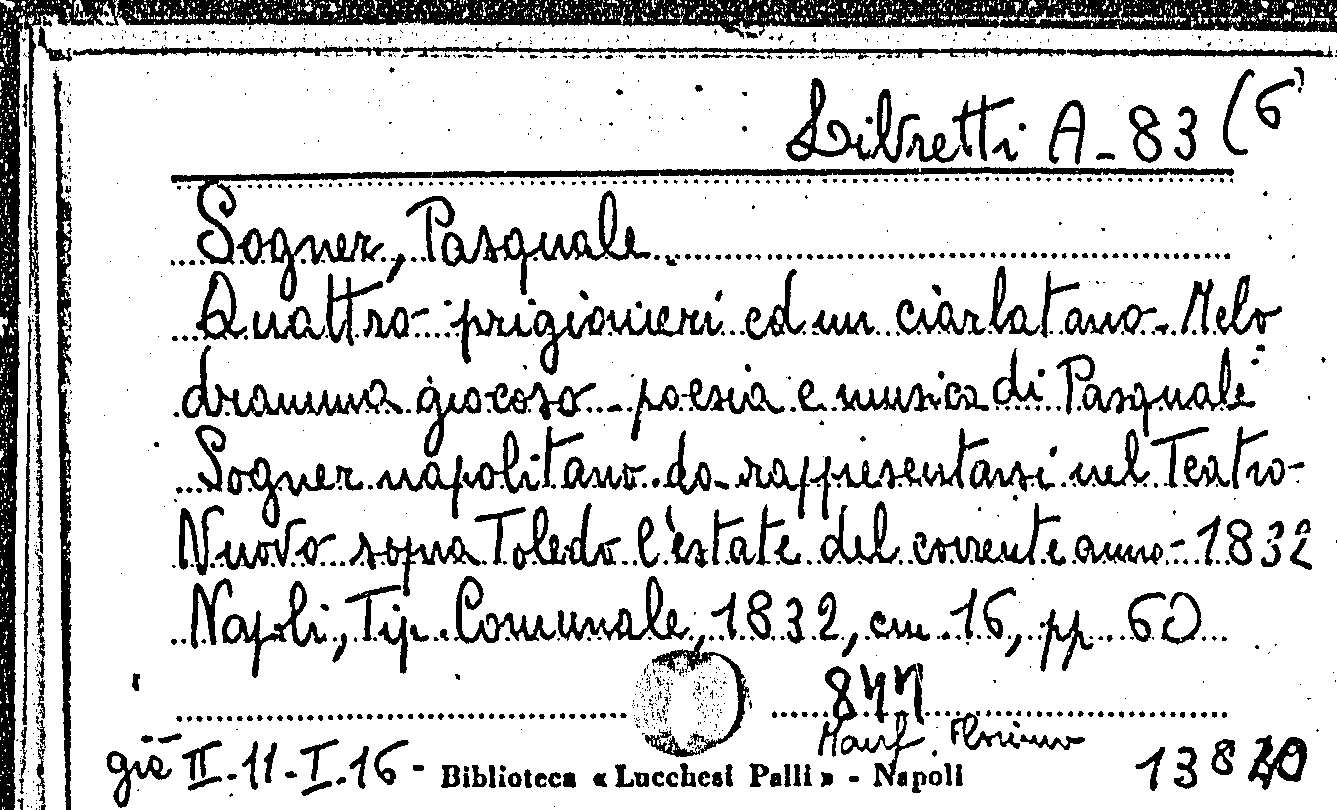 Libretti A-83 (6)
Sogner, Pasquale.
Quattro prigionieri ed un ciarlatano. Melo
dramma giocoso - poesia e musica di Pasquale
Sogner napolitano da rappresentarsi nel Teatro
Nuovo sopra Toledo l'estate del corrente anno - 1832
Napoli, Tip. Comunale, 1832, cm. 16, pp. 60
già II-11-I.16 - Biblioteca « Lucchesi Palli » - Napoli